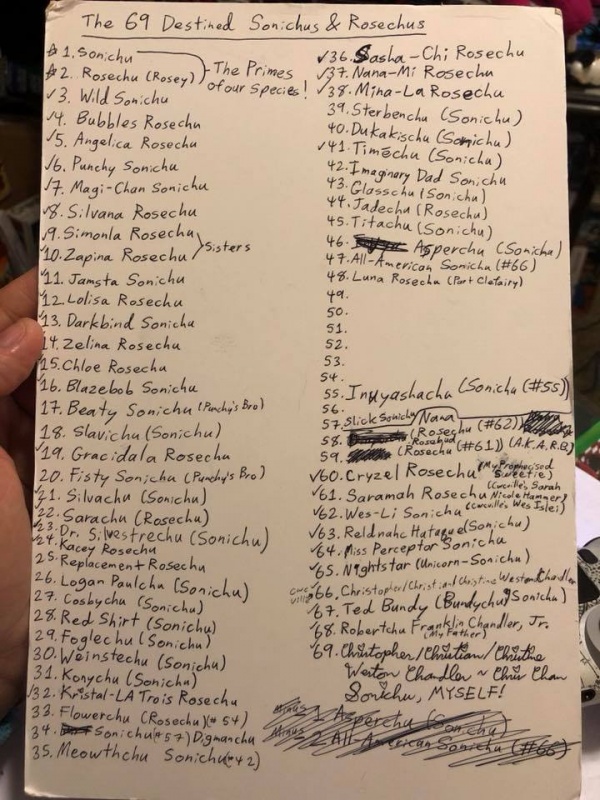 The 69 Destined Sonichus & Rosechus
1. Sonichu
2. Rosechu (Rosey)
The Primes
of our Species!
✓3. Wild Sonichu
✓4. Bubbles Rosechu
✓5. Angelica Rosechu
✓6. Punchy Sonichu
✓7. Magi-Chan Sonichu
✓8. Silvana Rosechu
✓9. Simonla Rosechu
✓10. Zapina Rosechu
Sisters
✓11. Jamsta Sonichu
✓12. Lolisa Rosechu
✓13. Darkbind Sonichu
✓14. Zelina Rosechu
✓15. Chloe Rosechu
✓16. Blazebob Sonichu
17. Beaty Sonichu (Punchy's Bro)
18. Slavichu (Sonichu)
✓19. Gracidala Rosechu
20. Fisty Sonichu (Punchy's Bro)
✓21. Silvachu (Sonichu)
✓22. Sarachu (Rosechu)
✓23. Dr. Silvestrechu (Sonichu)
✓24. Kacey Rosechu
25. Replacement Rosechu
26. Logan Paulchu (Sonichu)
27. Cosbychu (Sonichu)
28. Red Shirt (Sonichu)
29. Foglechu (Sonichu)
30. Weinstechu (Sonichu)
31. Konychu (Sonichu)
✓32. Kristal-LA Trois Rosechu
33. Flowerchu (Rosechu)(#54)
34. Sonichu(#57) Digmanchu
35. Meowthchu Sonichu(#42)
✓36. Sasha-Chi Rosechu
✓37. Nana-Mi Rosechu
✓38. Mina-La Rosechu
39. Sterbenchu (Sonichu)
40. Dukakischu (Sonichu)
✓41. Timēchu (Sonichu)
42. Imaginary Dad Sonichu
43. Glasschu (Sonichu)
44. Jadechu (Rosechu)
45. Titachu (Sonichu)
46. Asperchu (Sonichu)
47. All-American Sonichu (#66)
48. Luna Rosechu (Part Clefairy)
49.
50.
51.
52.
53.
54.
55. Inuyashachu (Sonichu (#55))
56.
57. Slick Sonichu
58. Nana (Rosechu (#62))
59. Rosebud (Rosechu (#61)) (A.K.A. R.B.)
✓60. Cryzel Rosechu (My Prophecised Sweetie)
✓61. Saramah Rosechu (Cwcville's Sarah Nicole Hammer)
✓62. Wes-Li Sonichu (Cwcville's Wes Islei)
✓63. Reldnahc Hataque (Sonichu)
✓64. Miss Perceptor Sonichu
✓65. Nightstar (Unicorn-Sonichu)
cwcville ✓66. Christopher/Christian/Christine Weston Chandler
✓67. Ted Bundy (Bundychu) (Sonichu)
✓68. Robertchu Franklin Chandler, Jr.
(My Father)
✓69. Christopher/Christian/Christine
Weston Chandler ~ Chris Chan
Sonichu, MYSELF!
Minus 1 Asperchu (Sonichu)
Minus 2 All-American Sonichu (#66)